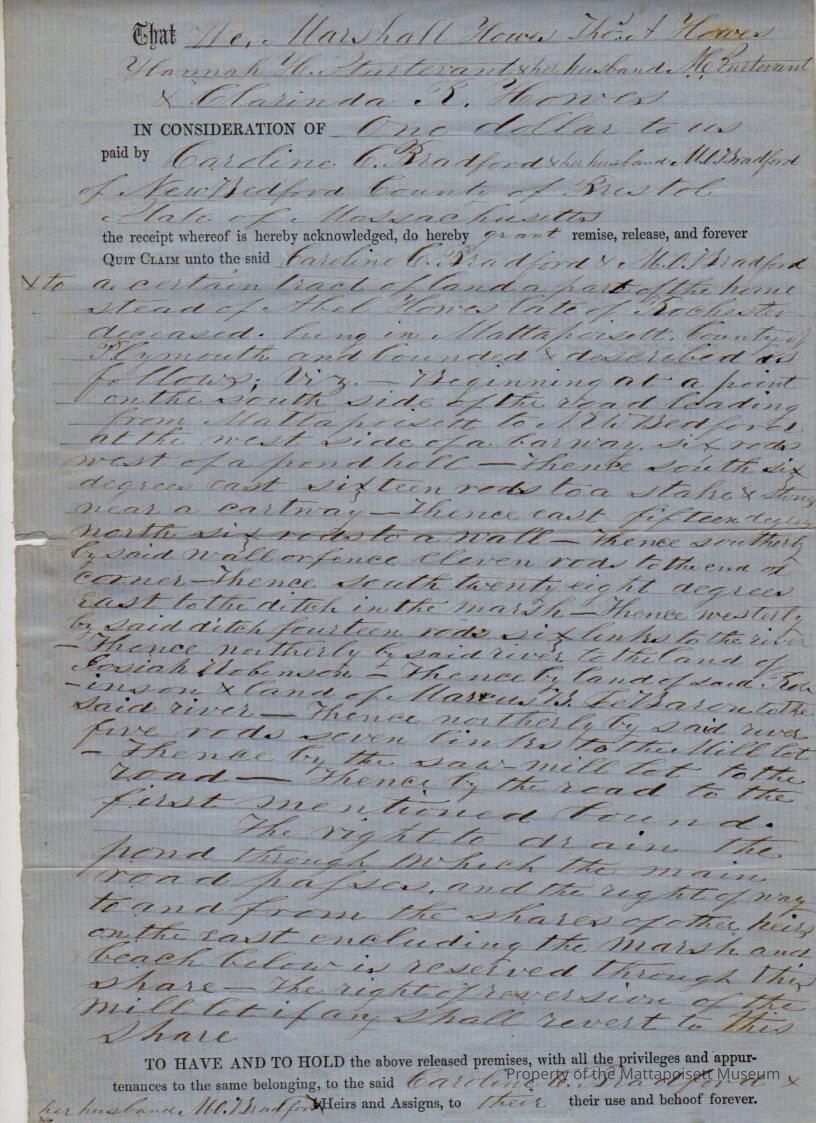 That We, Marshall Howes Thos. A Howes
Hannah H. Sturtevant & her husband
& Clarinda R. Howes
IN CONSIDERATION OF One dollar to us
paid by Caroline C. Bradford & her husband M.C. Bradford
of New Bedford County of Bristol
State of Massachusetts
the receipt whereof is hereby acknowledged, do hereby grant remise, release, and forever
QUIT CLAIM unto the said Caroline C. Bradford & M.C. Bradford
X to a certain tract of land a part of the home
stead of Abel Howes late of Rochester
deceased. lying in Mattapoisett. County of
Plymouth and bounded & described as
follows; Viz. — Beginning at a point
on the south side of the road leading
from Mattapoisett to New Bedford
at the west side of a barway, six rods
west of a pond hole — Thence south six
degrees east sixteen rods to a stake & stones
near a cartway — Thence east fifteen degrees
north six rods to a wall — Thence southerly
by said wall or fence eleven rods to the end or
corner — Thence south twenty eight degrees
East to the ditch in the marsh — Thence westerly
by said ditch fourteen rods six links to the river
— Thence northerly by said river to the land of
Josiah Robinson — Thence by land of said Rob
-inson & land of Marcus B. LeBaron to the
said river — Thence northerly by said river
five rods seven links to the Mill lot
— Thence by the saw-mill lot to the
road — Thence by the road to the
first mentioned bound.
The right to drain the
pond through which the main
road passes, and the right of way
to and from the shares of other heirs
on the east encluding the marsh and
beach below is reserved through this
share — The right of reversion of the
mill lot if any shall revert to this
share
TO HAVE AND TO HOLD the above released premises, with all the privileges and appur-
tenances to the same belonging, to the said Caroline C. Bradford &
her husband M.C. Bradford Heirs and Assigns, to their use and behoof forever.
Property of the Mattapoisett Museum